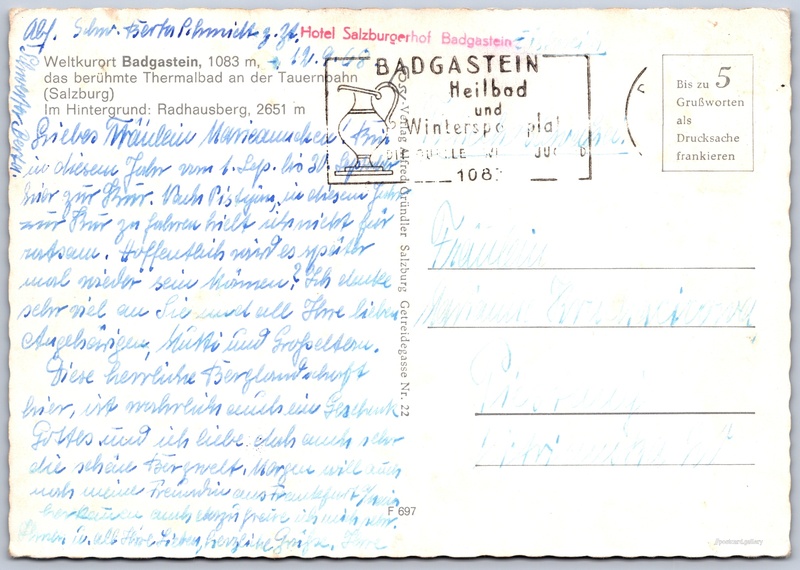 Abs. Schw. Berta Schmidt z. Zt. Hotel Salzburgerhof Badgastein
12.9.68
Weltkurort Badgastein, 1083 m,
das berühmte Thermalbad an der Tauernbahn
(Salzburg)
Im Hintergrund: Radhausberg, 2651 m
BADGASTEIN
Heilbad
und
Wintersportplatz
108
Bis zu 5
Grußworten
als
Drucksache
frankieren
Liebes Fräulein Bin
in diesem Jahr vom 1. Sep. bis
hier zur Kur. Nach Pistyan, in diesem Jahr
zur Kur zu fahren hielt ich nicht für
ratsam. Hoffentlich wird es später
mal wieder sein können? Ich denke
sehr viel an Sie und all Ihre lieben
Angehörigen, Mutti und Großeltern.
Diese herrliche Berglandschaft
hier, ist wahrlich auch ein Geschenk
Gottes und ich liebe doch auch sehr
die schöne Bergwelt. Morgen will auch
noch meine Freundin aus Frankfurt Main
herkommen freue ich mich sehr.
Ihnen u. all Ihre Lieben, herzliche Grüße. Ihre
Schwester Berta
Verlag Alfred Gründler Salzburg Getreidegasse Nr. 22
Fräulein
F 697